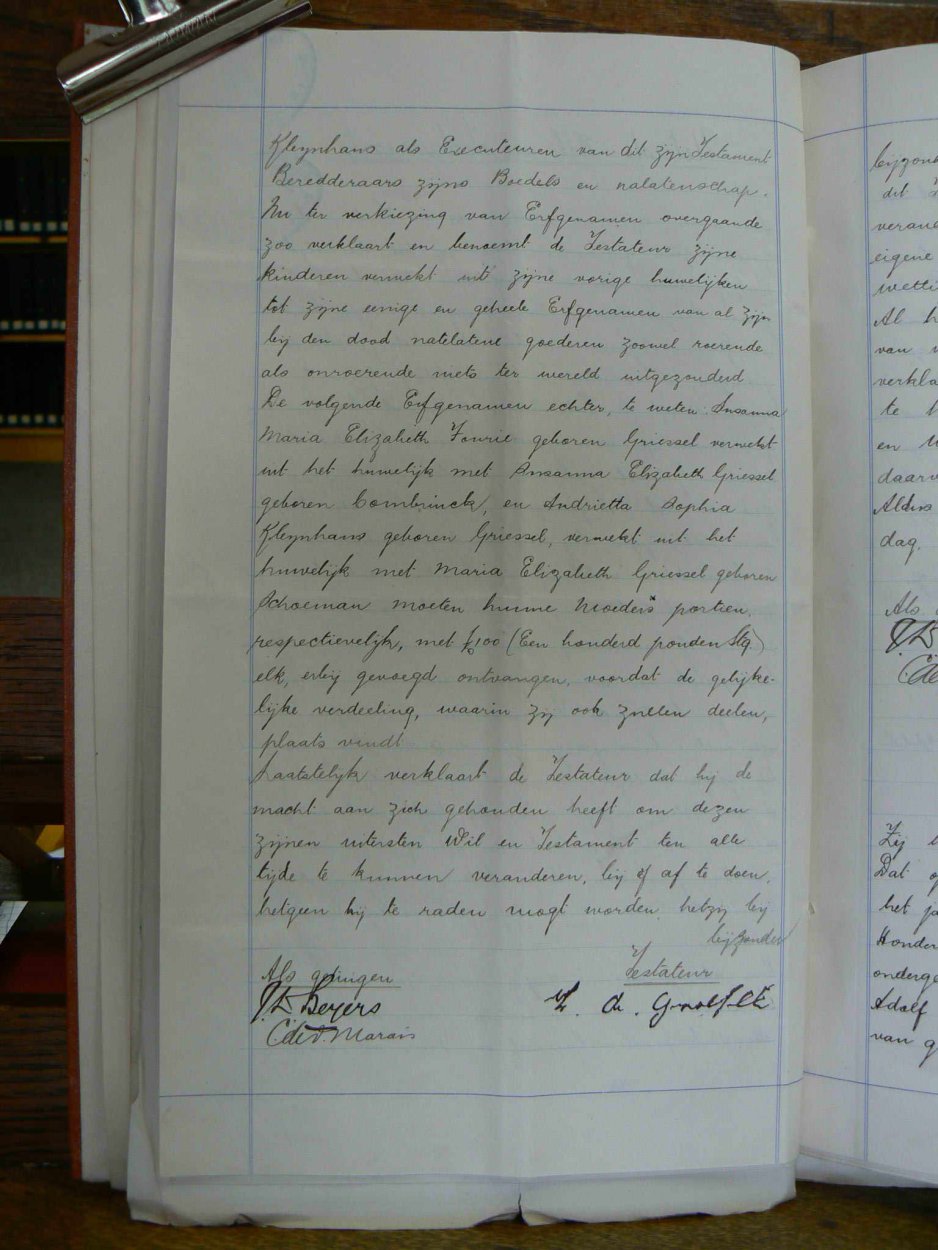 Kleynhans als Executeuren van dit zijn Testament
Beredderaars zijns Boedels en nalatenschap.
Nu ter verkiezing van Erfgenamen overgaande
zoo verklaart en benoemt de Testateur zijne
kinderen verwekt uit zijne vorige huwelijken
tot zijne eenige en geheele Erfgenamen van al zijn
bij den dood natelatene goederen zoowel roerende
als onroerende niets ter wereld uitgezonderd
De volgende Erfgenamen echter, te weten Susanna
Maria Elizabeth Fourie geboren Griessel verwekt
uit het huwelijk met Susanna Elizabeth Griessel
geboren Combrinck, en Andrietta Sophia
Kleynhans geboren Griessel, verwekt uit het
huwelijk met Maria Elizabeth Griessel geboren
Schoeman moeten hunne Moeders portien,
respectievelijk, met £100 (Een honderd ponden Stg)
elk, erbij gevoegd ontvangen, voordat de gelijke-
lijke verdeeling, waarin zij ook zullen deelen,
plaats vindt
Laatstelijk verklaart de Testateur dat hij de
macht aan zich gehouden heeft om dezen
zijnen uitersten Wil en Testament ten alle
tijde te kunnen veranderen, bij of af te doen,
hetgeen hij te raden mogt worden, hetzij bij
bijzonder
Als getuigen
Testateur
Beyers
C de V. Marais
bijzond
dit
veran
eigene
wetti
Al h
van
verkla
te
en
daarv
Aldus
dag.
Als
Zij
Dat
het ja
Honder
onderge
Adolf
van g